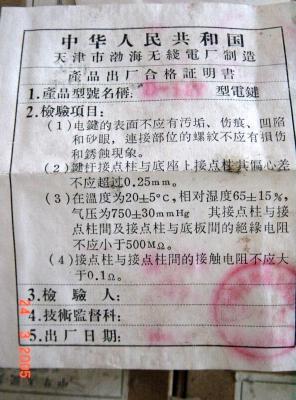 中华人民共和国
天津市渤海无綫電厂制造
產品出厂合格証明書
1.產品型號名稱: 型電鍵
2.檢驗項目:
(1)电鍵的表面不应有汚垢、伤痕、凹陷
和砂眼,連接部位的螺紋不应有損伤
和銹蝕現象。
(2)鍵扞接点柱与底座上接点柱其偏心差
不应超过0.25mm。
(3)在溫度为20±5°c,相对湿度65±15%,
气压为750±30mmHg 其接点柱与接
点柱間及接点柱与底板間的絕緣电阻
不应小于500MΩ。
(4)接点柱与接点柱間的接触电阻不应大
于0.1Ω。
3.檢 驗 人:
4.技術監督科:
5.出 厂 日 期:
24 3 2005